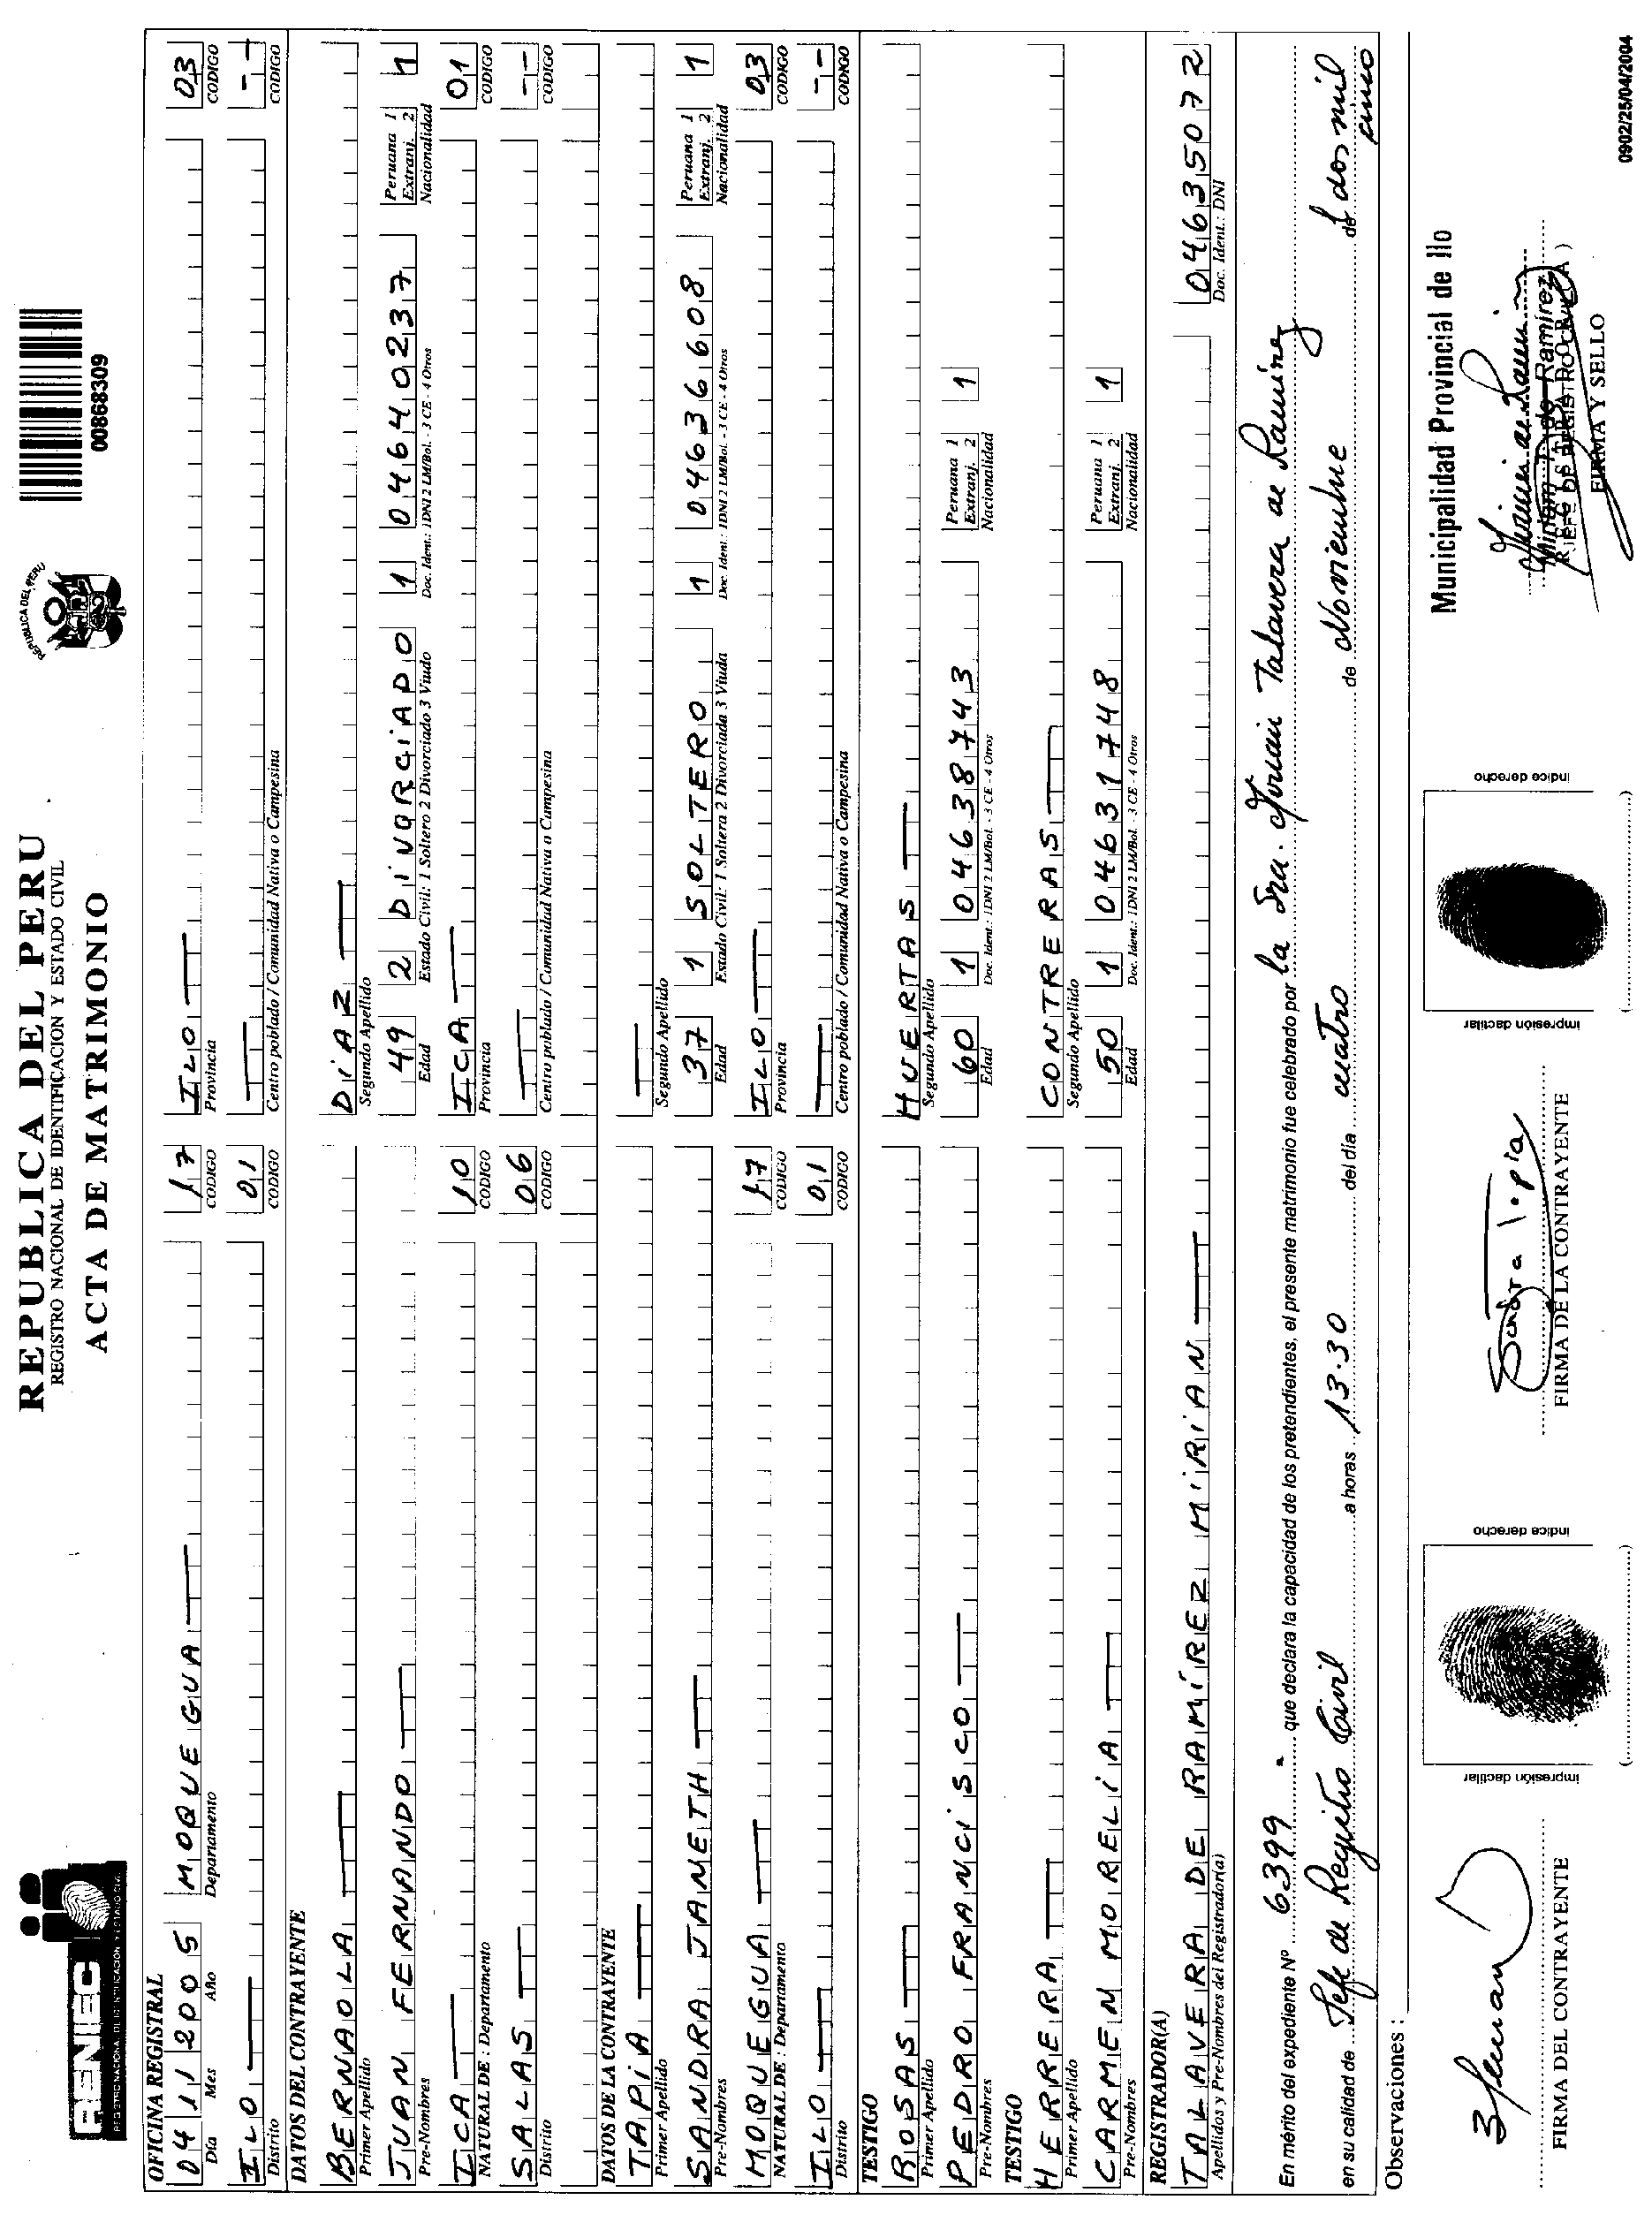 RENIEC
REGISTRO NACIONAL DE IDENTIFICACION Y ESTADO CIVIL
REPUBLICA DEL PERU
REGISTRO NACIONAL DE IDENTIFICACION Y ESTADO CIVIL
ACTA DE MATRIMONIO
REPUBLICA DEL PERU
00868309
OFICINA REGISTRAL
04 11 2005 MOQUEGUA 17 ILO 03
Día Mes Año Departamento CODIGO Provincia CODIGO
ILO 01 --
Distrito CODIGO Centro poblado / Comunidad Nativa o Campesina CODIGO
DATOS DEL CONTRAYENTE
BERNAOLA DÍAZ
Primer Apellido Segundo Apellido
JUAN FERNANDO 49 2 DIVORCIADO 1 04640237 Peruana 1 Extranj. 2 1
Pre-Nombres Edad Estado Civil: 1 Soltero 2 Divorciado 3 Viudo Doc. Ident.: 1DNI 2 LM/Bol. - 3 CE - 4 Otros Nacionalidad
ICA 10 ICA 01
NATURAL DE : Departamento CODIGO Provincia CODIGO
SALAS 06 --
Distrito CODIGO Centro poblado / Comunidad Nativa o Campesina CODIGO
DATOS DE LA CONTRAYENTE
TAPIA
Primer Apellido Segundo Apellido
SANDRA JANETH 37 1 SOLTERO 1 04636608 Peruana 1 Extranj. 2 1
Pre-Nombres Edad Estado Civil: 1 Soltera 2 Divorciada 3 Viuda Doc. Ident.: 1DNI 2 LM/Bol. - 3 CE - 4 Otros Nacionalidad
MOQUEGUA 17 ILO 03
NATURAL DE : Departamento CODIGO Provincia CODIGO
ILO 01 --
Distrito CODIGO Centro poblado / Comunidad Nativa o Campesina CODIGO
TESTIGO
ROSAS HUERTAS
Primer Apellido Segundo Apellido
PEDRO FRANCISCO 60 1 04638743 Peruana 1 Extranj. 2 1
Pre-Nombres Edad Doc. Ident.: 1DNI 2 LM/Bol. - 3 CE - 4 Otros Nacionalidad
TESTIGO
HERRERA CONTRERAS
Primer Apellido Segundo Apellido
CARMEN MORELIA 50 1 04631748 Peruana 1 Extranj. 2 1
Pre-Nombres Edad Doc. Ident.: 1DNI 2 LM/Bol. - 3 CE - 4 Otros Nacionalidad
REGISTRADOR(A)
TALAVERA DE RAMÍREZ MIRIAN 04635072
Apellidos y Pre-Nombres del Registrador(a) Doc. Ident.: DNI
En mérito del expediente Nº 6399 que declara la capacidad de los pretendientes, el presente matrimonio fue celebrado por la Sra. Mirian Talavera de Ramirez
en su calidad de Jefe de Registro Civil a horas 13.30 del día cuatro de Noviembre de dos mil cinco
Observaciones :
FIRMA DEL CONTRAYENTE
impresión dactilar
índice derecho
Sandra Tapia
FIRMA DE LA CONTRAYENTE
impresión dactilar
índice derecho
Municipalidad Provincial de Ilo
FIRMA Y SELLO
0902/25/04/2004